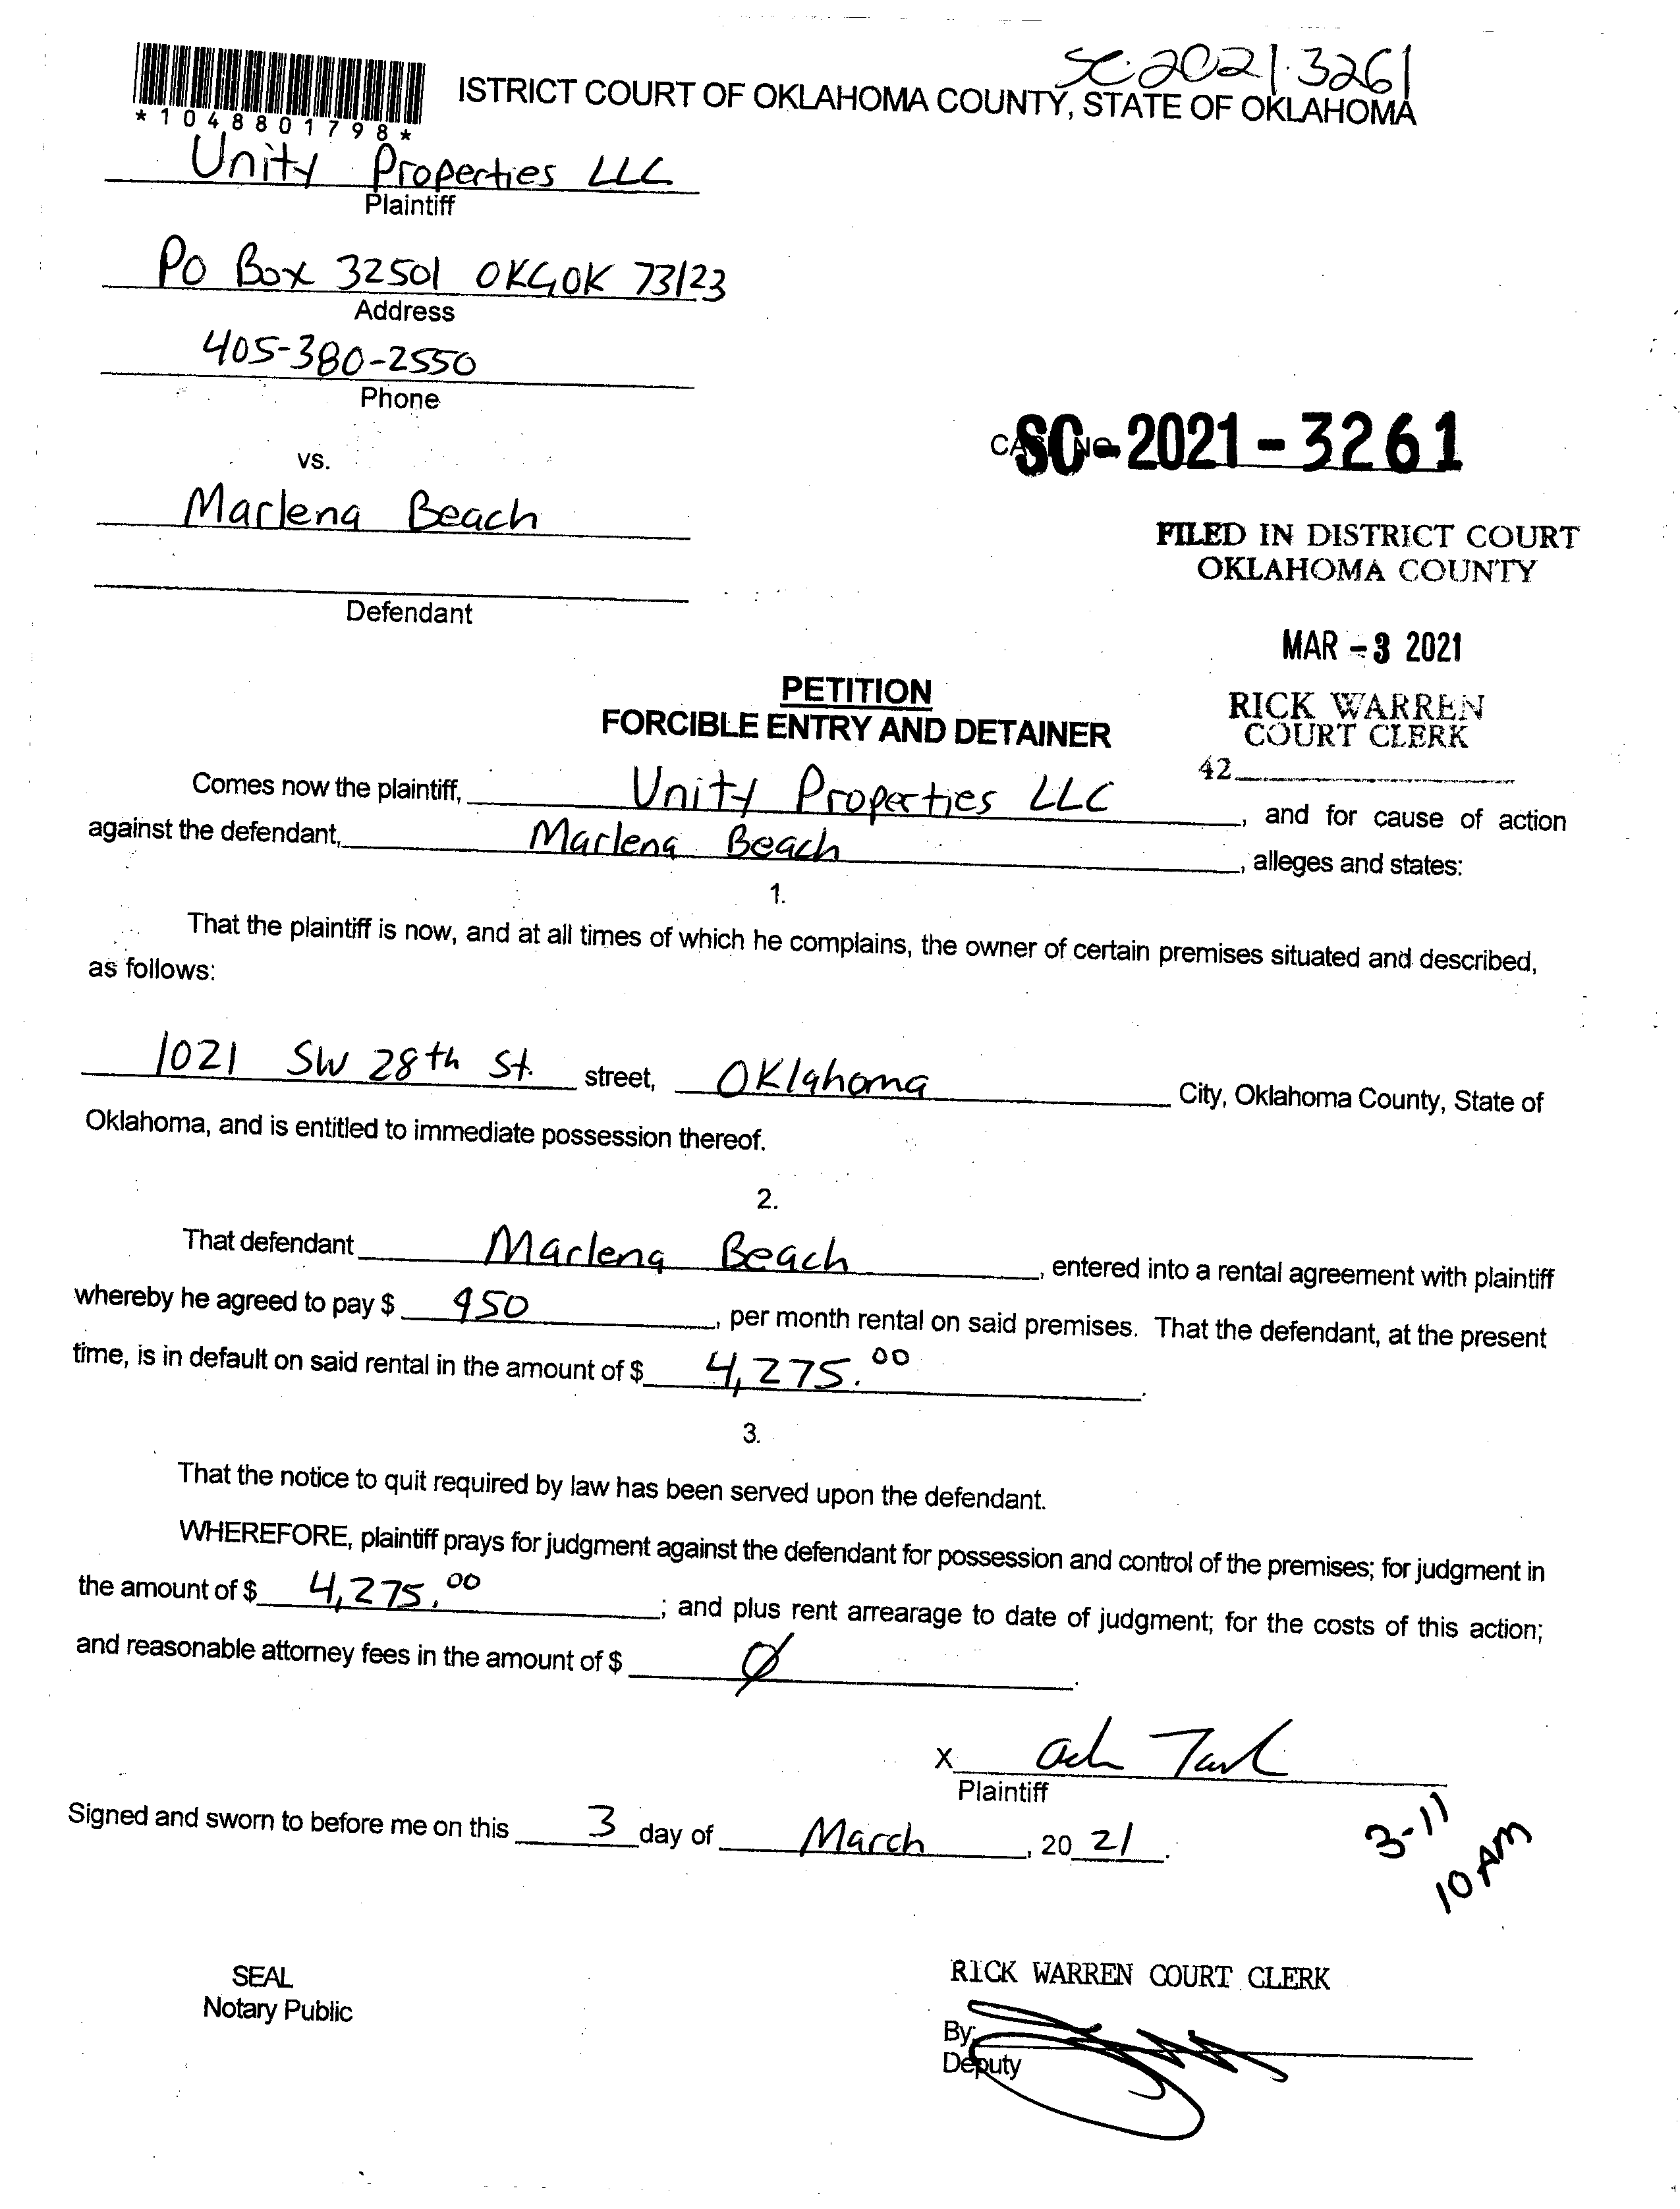 SC-2021-3261
ISTRICT COURT OF OKLAHOMA COUNTY, STATE OF OKLAHOMA
*1048801798*
Unity Properties LLC
Plaintiff
PO Box 32501 OKC, OK 73123
Address
405-380-2550
Phone
vs.
SC-2021-3261
Marlena Beach
FILED IN DISTRICT COURT
OKLAHOMA COUNTY
Defendant
MAR -3 2021
PETITION
FORCIBLE ENTRY AND DETAINER
RICK WARREN
COURT CLERK
42
Comes now the plaintiff, Unity Properties LLC, and for cause of action
against the defendant, Marlena Beach, alleges and states:
1.
That the plaintiff is now, and at all times of which he complains, the owner of certain premises situated and described,
as follows:
1021 SW 28th St. street, Oklahoma City, Oklahoma County, State of
Oklahoma, and is entitled to immediate possession thereof.
2.
That defendant Marlena Beach, entered into a rental agreement with plaintiff
whereby he agreed to pay $ 950, per month rental on said premises. That the defendant, at the present
time, is in default on said rental in the amount of $ 4,275.00.
3.
That the notice to quit required by law has been served upon the defendant.
WHEREFORE, plaintiff prays for judgment against the defendant for possession and control of the premises; for judgment in
the amount of $ 4,275.00; and plus rent arrearage to date of judgment; for the costs of this action;
and reasonable attorney fees in the amount of $ Ø.
X
Plaintiff
Signed and sworn to before me on this 3 day of March, 20 21.
3-11
10 AM
SEAL
Notary Public
RICK WARREN COURT CLERK
By:
Deputy